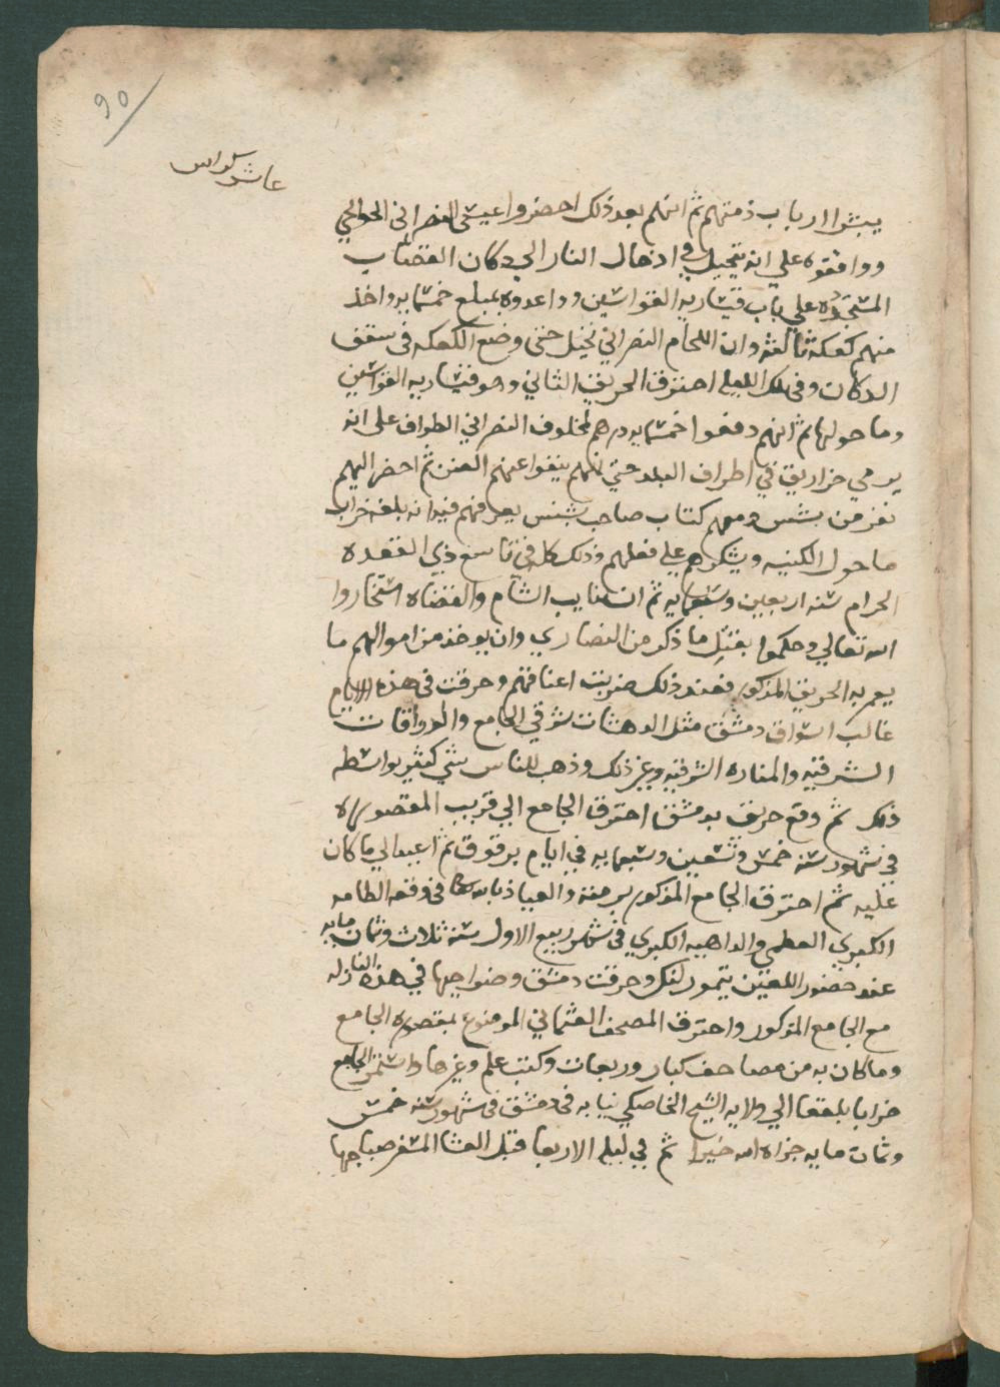 ٩٥
عاشر كراس
يبثوا ارباب ذمتهم ثم انهم بعد ذلك احضروا عيسى النصراني
ووافقوه على انه يتحيل في ادخال النار الى دكان القصاب
المستجده على باب قيساريه القواسين وواعدوه بمبلغ خمسمايه واخذ
منهم كعكة ثالثة وان اللحام النصراني تحيل حتى وضع الكعكه في سقف
الدكان وفي تلك الليله احترق الحريق الثاني وهو قيساريه القواسين
وما حولها ثم انهم دفعوا خمسمايه درهم لمخلوف النصراني الطواف على انه
يرمي خراريق في اطراف البلد حتى انهم ينفوا عنهم ثم احضر اليهم
نفر من ومعهم كتاب صاحب يعرفهم فيه انه بلغه خراب
ما حول الكنيسه ويشكرهم على فعلهم وذلك كله في تاسع ذي القعده
الحرام سنه اربعين وسبعمايه ثم ان نايب الشام والقضاه استخاروا
الله تعالى وحكموا بقتل ما ذكر من النصاري وان يوخذ من اموالهم ما
يعمر به الحريق المذكور فعند ذلك ضربت اعناقهم وحرقت في هذه الايام
غالب اسواق دمشق مثل الدهشات شرقي الجامع والرواقات
الشرقيه والمناره الشرقيه وغير ذلك وذهب للناس شي كثير بواسطه
ذلك ثم وقع حريق بدمشق احترق الجامع الى قريب المقصوره
في شهور سنه خمس وتسعين وسبعمايه في ايام برقوق ثم اعيد الى ما كان
عليه ثم احترق الجامع المذكور برمته والعياذ بالله في وقعه الطامه
الكبري العظمي والداهيه الكبري في شهر ربيع الاول سنه ثلاث وثمان مايه
عند حضور اللعين تيمور لنك وحرقت دمشق وضواحيها في هذه النازله
مع الجامع المذكور واحترق المصحف العثماني الموضوع بمقصوره الجامع
وما كان به من مصاحف كبار وربعات وكتب علم وغيرها واستمر الجامع
خرابا بلقعا الى ولايه الشيخ الخاصكي نيابه في دمشق في شهور سنه خمس
وثمان مايه جزاه الله خيرا ثم في ليله الاربعا قبل العشا المسفر صباحها